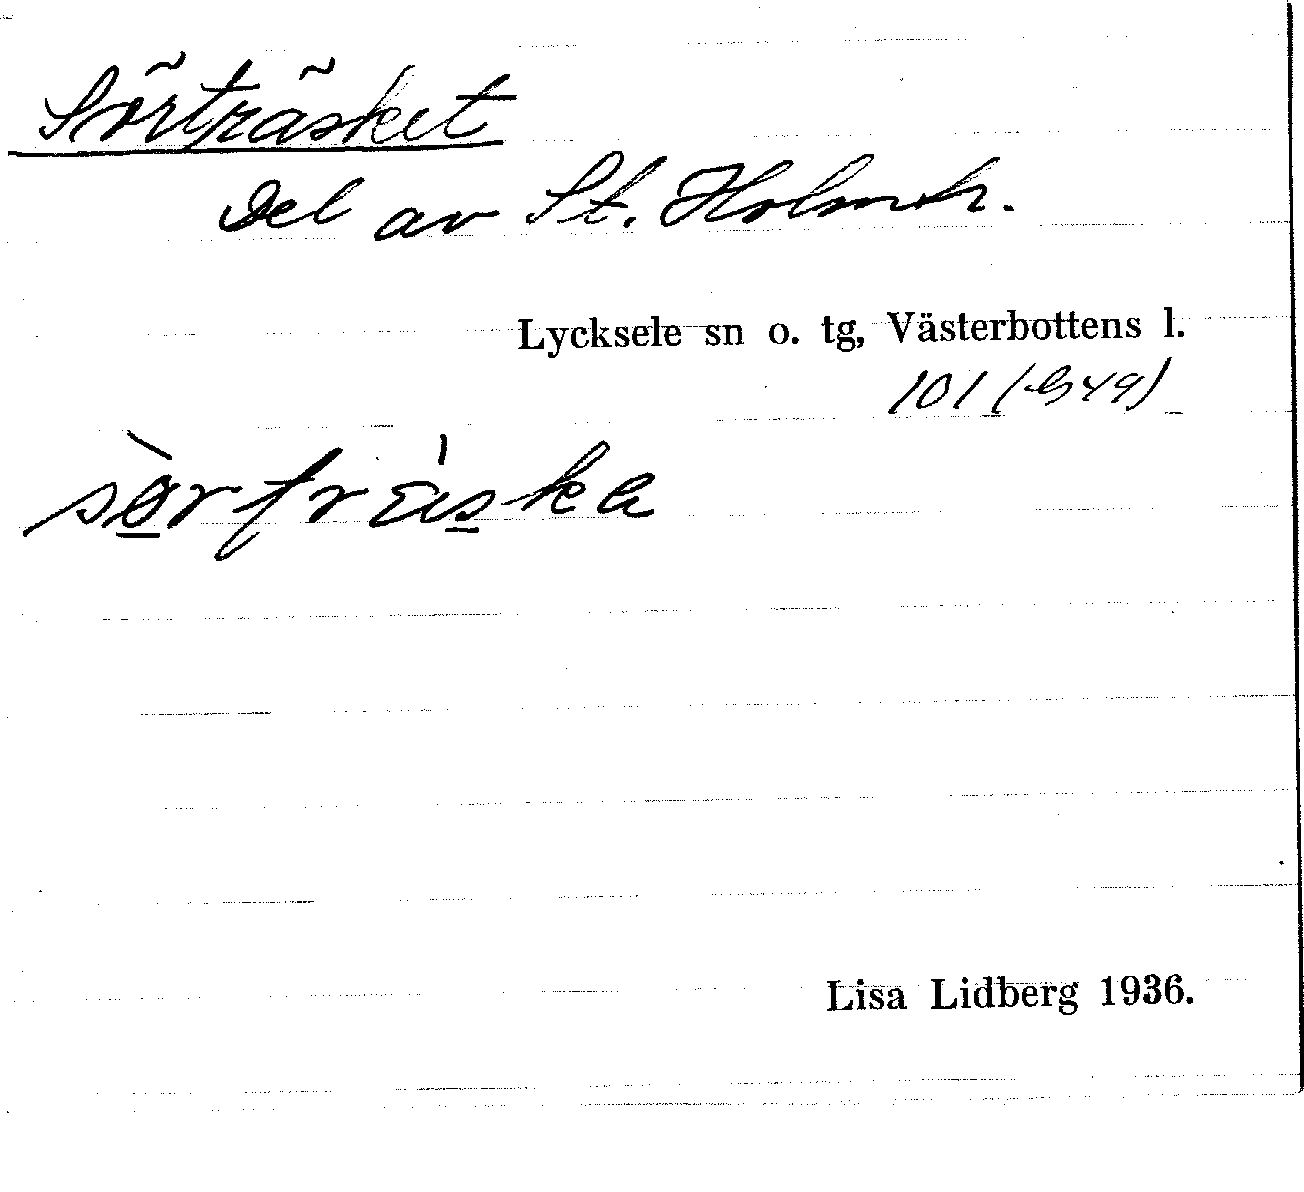 Sörträsket
Del av St. Holmtr.
Lycksele sn o. tg, Västerbottens l.
101
Lisa Lidberg 1936.